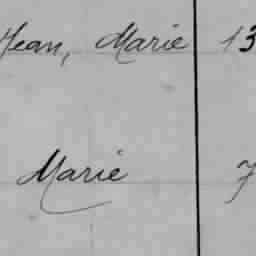 Jean, Marie 13
Marie 7